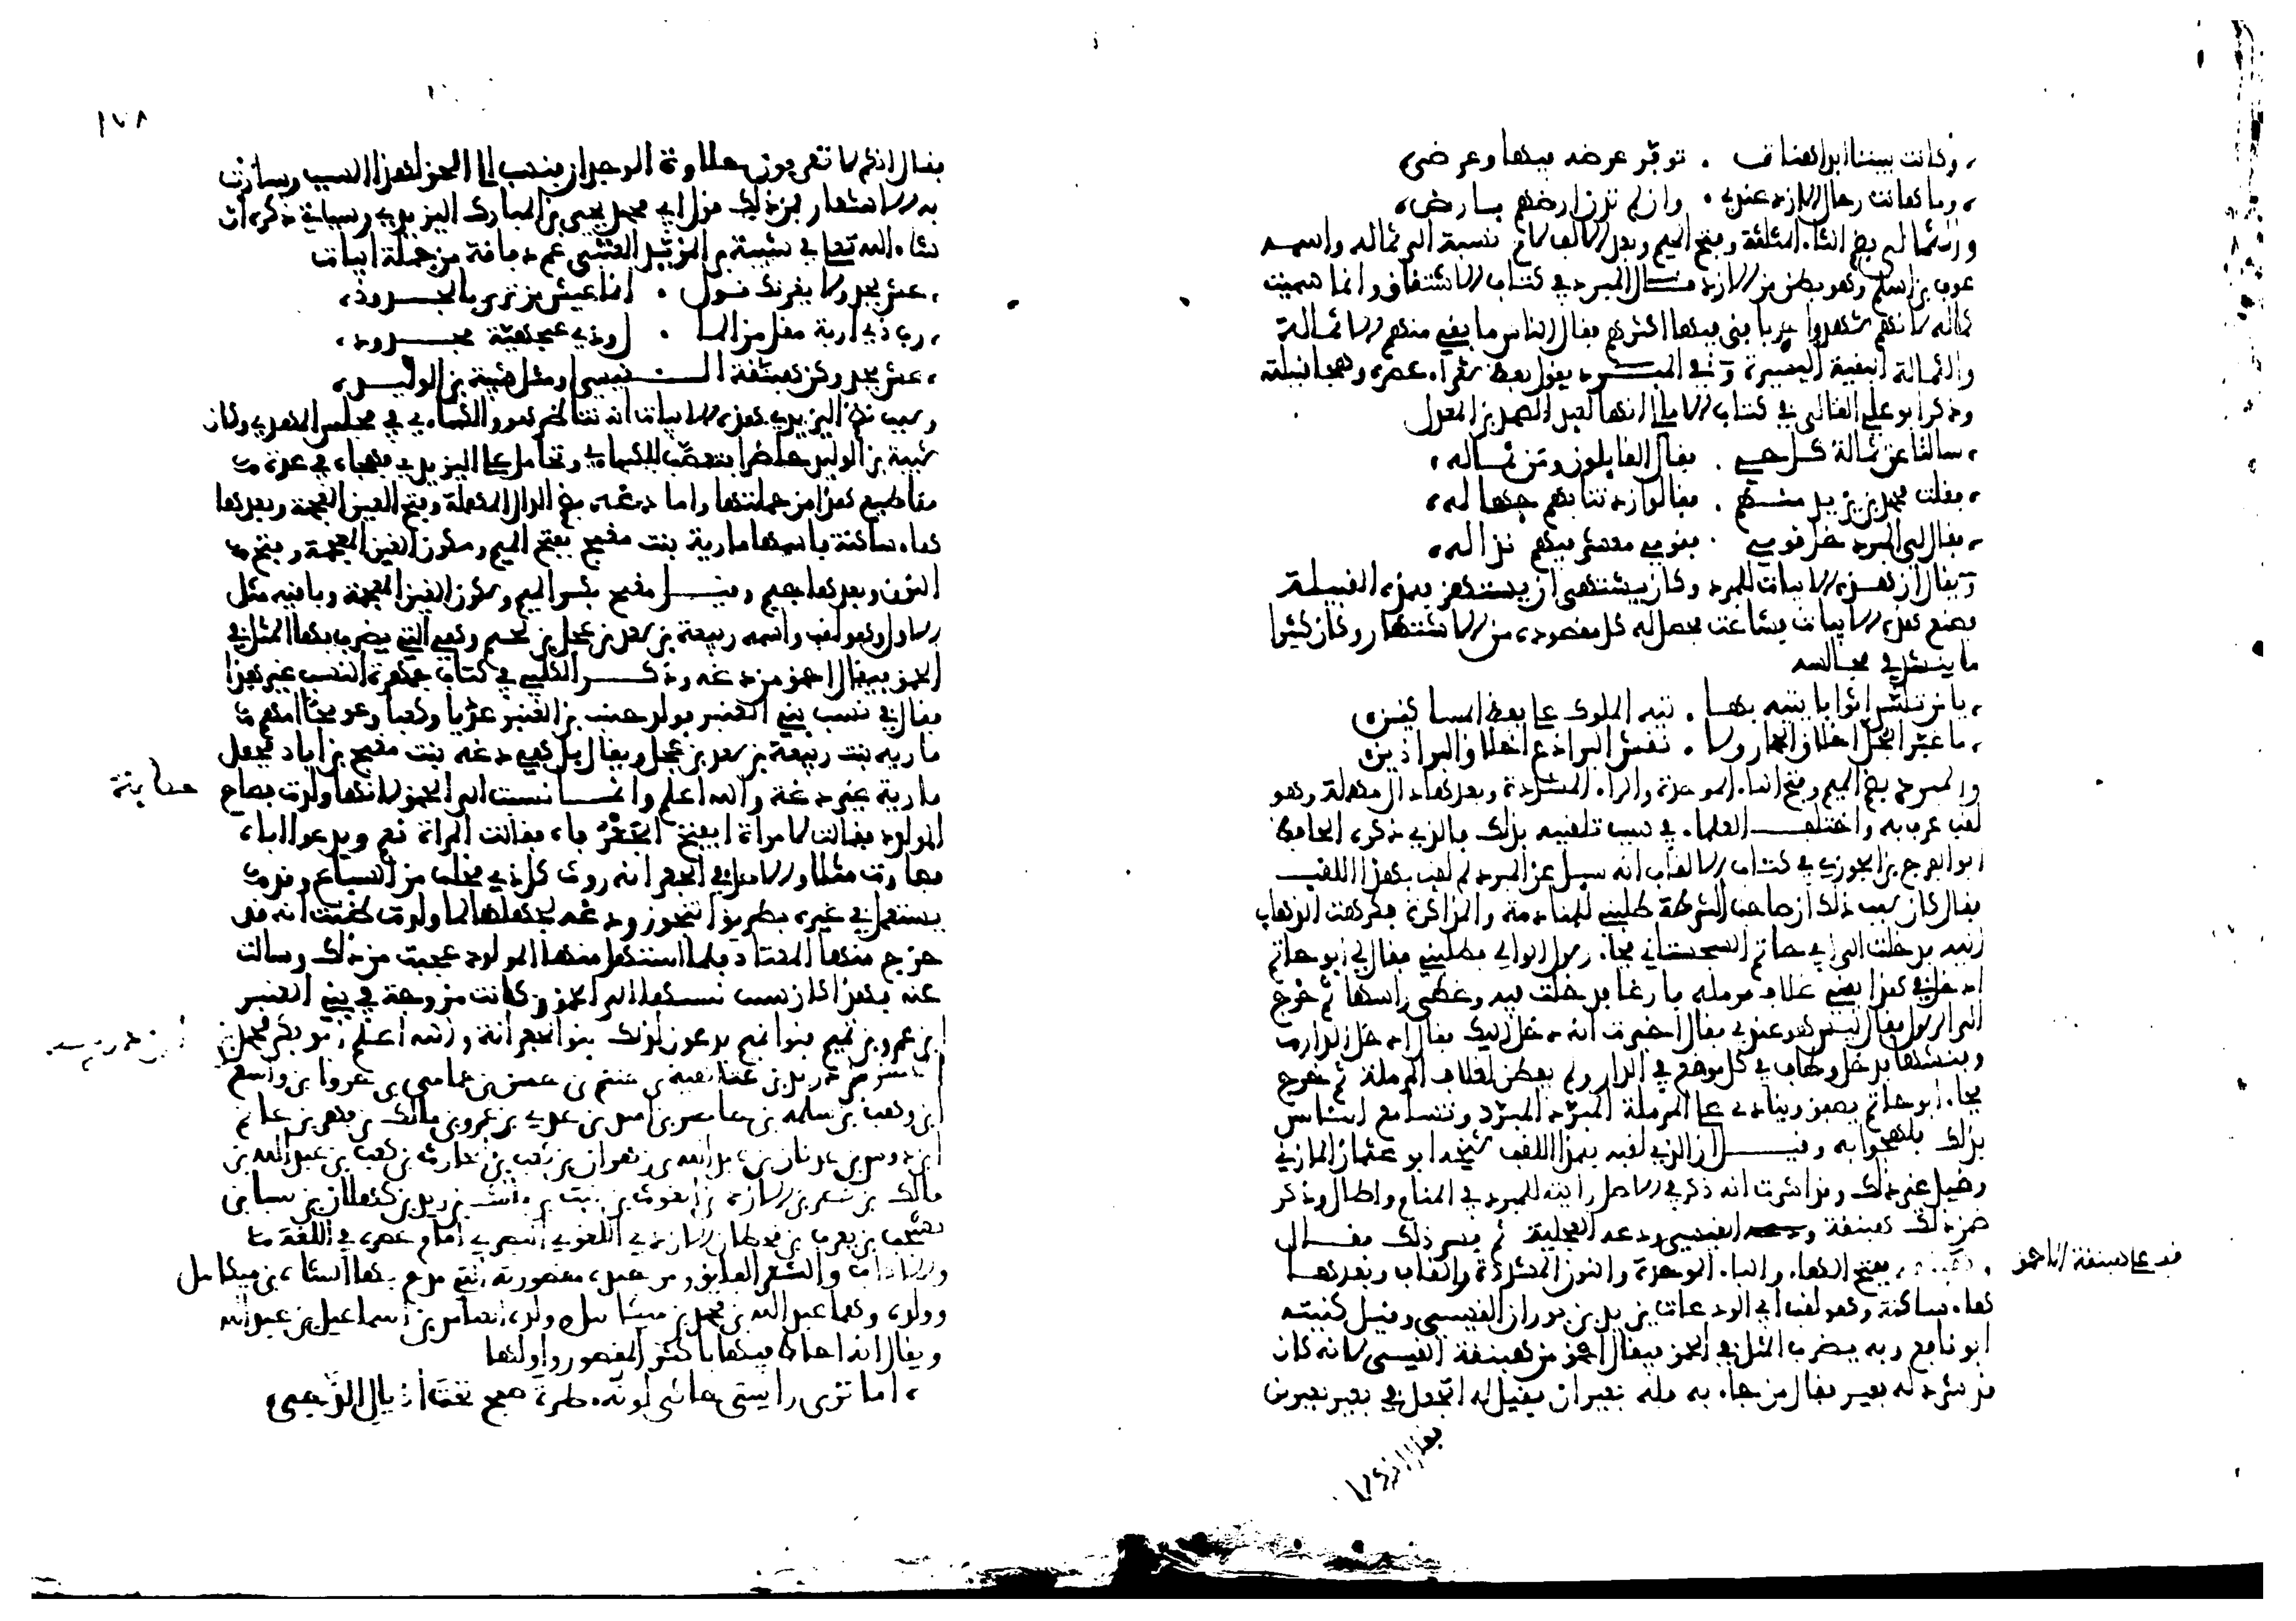 وكانت بيننا ابدا هنات . توفر عرضه فيها وعرضي
وما هانت رجال الازد عندي . وان لم تدن ارضهم بارضي
والثمالي بضم الثاء المثلثة وفتح الميم وبعد الالف لام نسبة الى ثماله واسمه
عوف بن اسلم وهو بطن من الازد قال المبرد في كتاب الاشتقاق وانما سميت
ثماله لانهم شهدوا حربا فني فيها اكثرهم فقال الناس ما بقي منهم الا ثمالة
والثمالة البقية اليسيرة وفي المبرد يقول بعض شعراء عصره وهجا قبيلته
وذكر ابو علي القالي في كتاب الامالي انها لعبد الصمد بن المعذل
سالنا عن ثمالة كل حي . فقال القايلون ومن ثماله
فقلت محمد بن يزيد منهم . فقالوا زدتنا بهم جهاله
فقال لي المبرد خل قومي . فقومي معشر فيهم نذاله
ويقال ان هذه الابيات للمبرد وكان يشتهي ان يشتهر بهذه القبيلة
فصنع هذه الابيات فشاعت فحصل له كل مقصوده من الاشتهار وكان كثيرا
ما ينشد في مجالسه
يا من تلبس اثوابا يتيه بها . تيه الملوك على بعض المساكين
ما غير الجل اخلاق الحمار ولا . نقش البراذع اخلاق البراذين
والمبرد بضم الميم وفتح الباء الموحدة والراء المشددة وبعدها دال مهملة وهو
لقب عرف به واختلف العلماء في سبب تلقيبه بذلك فالذي ذكره الحافظ
ابو الفرج بن الجوزي في كتاب الالقاب انه سيل عن المبرد لم لقب بهذا اللقب
فقال كان سبب ذلك ان صاحب الشرطة طلبني للمنادمة والمذاكرة فكرهت الذهاب
اليه فدخلت الى ابي حاتم السجستاني فجاء رسول الوالي يطلبني فقال لي ابو حاتم
ادخل في هذا يعني غلاف مزمله فارغا فدخلت فيه وغطى راسها ثم خرج
الى الرسول فقال ليس هو عندي فقال اخبرت انه دخل اليك فقال ادخل الدار
وفتشها فدخل وطاف في كل موضع في الدار ولم يفطن لغلاف المزملة ثم خرج
فجاء ابو حاتم يصفق وينادي على المزملة المبرد المبرد وتسامع الناس
بذلك فلهجوا به وقيل ان الذي لقبه بهذا اللقب شيخه ابو عثمان المازني
وقيل غير ذلك
ضمن ذلك هبنقة القيسي ودغه العجلية ثم فسر ذلك فقال
بفتح الهاء والباء الموحدة والنون المشددة والقاف وبعدها
هاء ساكنة وهو لقب ابي الودعات يزيد بن ثوران القيسي وقيل كنيته
ابو نافع وبه يضرب المثل في الحمق فيقال احمق من هبنقة القيسي لانه كان
قد شرد له بعير فقال من جاء به فله بعيران فقيل له اتجعل في بعير بعيرين
١٧٨
فقال انكم لا تعرفون حلاوة الوجدان فنسب الى الحمق لهذا السبب وسارت
به الاشعار فمن ذلك قول ابي محمد يحيى بن المبارك اليزيدي وسياتي ذكره ان
شاء الله تعالى في شيبة بن الوليد العبسي عم دقاقة من جملة ابيات
عش بجد ولا يغرنك نول . انما عيش من ترى بالجدود
رب ذي اربة مقل من المال . وذي عنجهية مجدود
عش بجد وكن هبنقة القيسي او مثل شيبة بن الوليد
وسبب نظم اليزيدي هذه الابيات انه تناظر هو والكساءي في مجلس المهدي وكان
شيبة بن الوليد حاضرا فتعصب للكساءي وتحامل على اليزيدي فهجاه في عدة
مقاطيع هذا من جملتها واما دغه بضم الدال المهملة وفتح الغين المعجمة وبعدها
هاء ساكنة فاسمها مارية بنت مغنج بفتح الميم وسكون الغين المعجمة وفتح
النون وبعدها جيم وقيل مغنج بكسر الميم وسكون الغين المعجمة وباقيه مثل
الاول وهو لقب واسمه ربيعة بن سعد بن عجل بن لجيم وهي التي يضرب بها المثل في
الحمق فيقال احمق من دغه وذكر الكلبي في كتاب جمهرة النسب غير هذا
فقال في نسب بني العنبر فولد جندب بن العنبر عديا وكعبا وعويجا امهم
مارية بنت ربيعة بن سعد بن عجل ويقال بل هي دغه بنت مغنج بن اياد فجعل
مارية غير دغة والله اعلم وانما نسبت الى الحمق لانها ولدت فصاح
المولود فقالت لامراة ايفتح الجعر فاه فقالت المراة نعم ويدعو اباه
فصارت مثلا والاصل في الجعر انه روث كل ذي مخلب من السباع وقد
يستعمل في غيره بطريق التجوز ودغه لجهلها لما ولدت ظنت انه قد
خرج منها المعتاد فلما استهل منها المولود عجبت من ذلك وسالت
عنه فهذا كان سبب نسبتها الى الحمق وكانت مزوجة في بني العنبر
ابن عمرو بن تميم فبنو تميم يدعون لذلك بنو الجعراء والله اعلم ابو بكر محمد بن
الحسن بن دريد بن عتاهية بن حنتم بن حسن بن حمامي بن جرو بن واسع
ابن وهب بن سلمه بن حاضر بن اسد بن عدي بن عمرو بن مالك بن فهم بن غانم
ابن دوس بن عدنان بن عبد الله بن زهران بن كعب بن الحارث بن كعب بن عبد الله بن
مالك بن نصر بن الازد بن الغوث بن نبت بن مالك بن زيد بن كهلان بن سبا بن
يشجب بن يعرب بن قحطان الازدي اللغوي البصري امام عصره في اللغة
والاداب والشعر الفايق ومن جيد مقصورته التي مدح بها الشاه بن ميكايل
وولده وهما عبد الله بن محمد بن ميكايل وولده ابو العباس اسماعيل بن عبد الله
ويقال انه احاط فيها باكثر المقصور واولها
اما تري راسي حاكي لونه . طرة صبح تحت اذيال الدجى